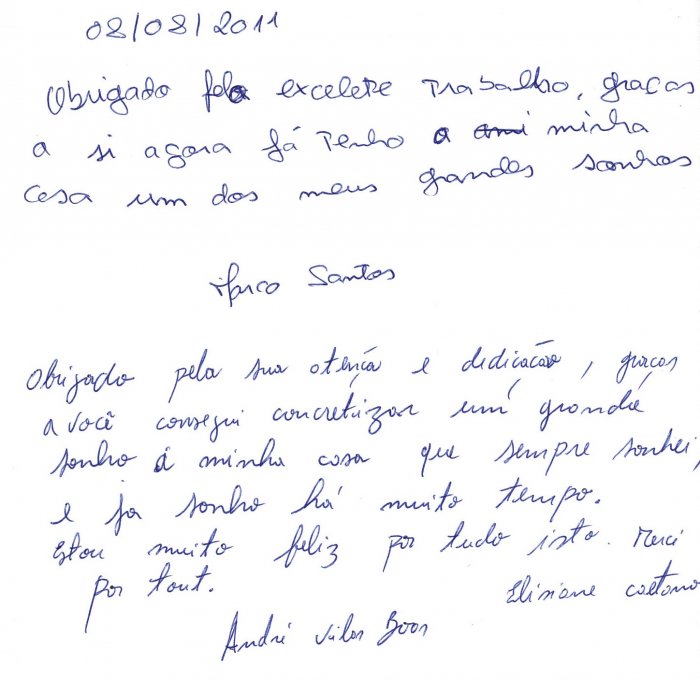 08/08/2011
Obrigado pela excelete Trabalho, graças
a si agora já Tenho a ami minha
casa um dos meus grandes sonhos
Marco Santos
Obrigado pela sua atença e dedicacão, graças
a você consegui concretizar um grande
sonho á minha casa que sempre sonhei,
e ja sonho há muito tempo.
Estou muito feliz por tudo isto. Merci
por tout.
Elisiane caetano
André Vilas Boas